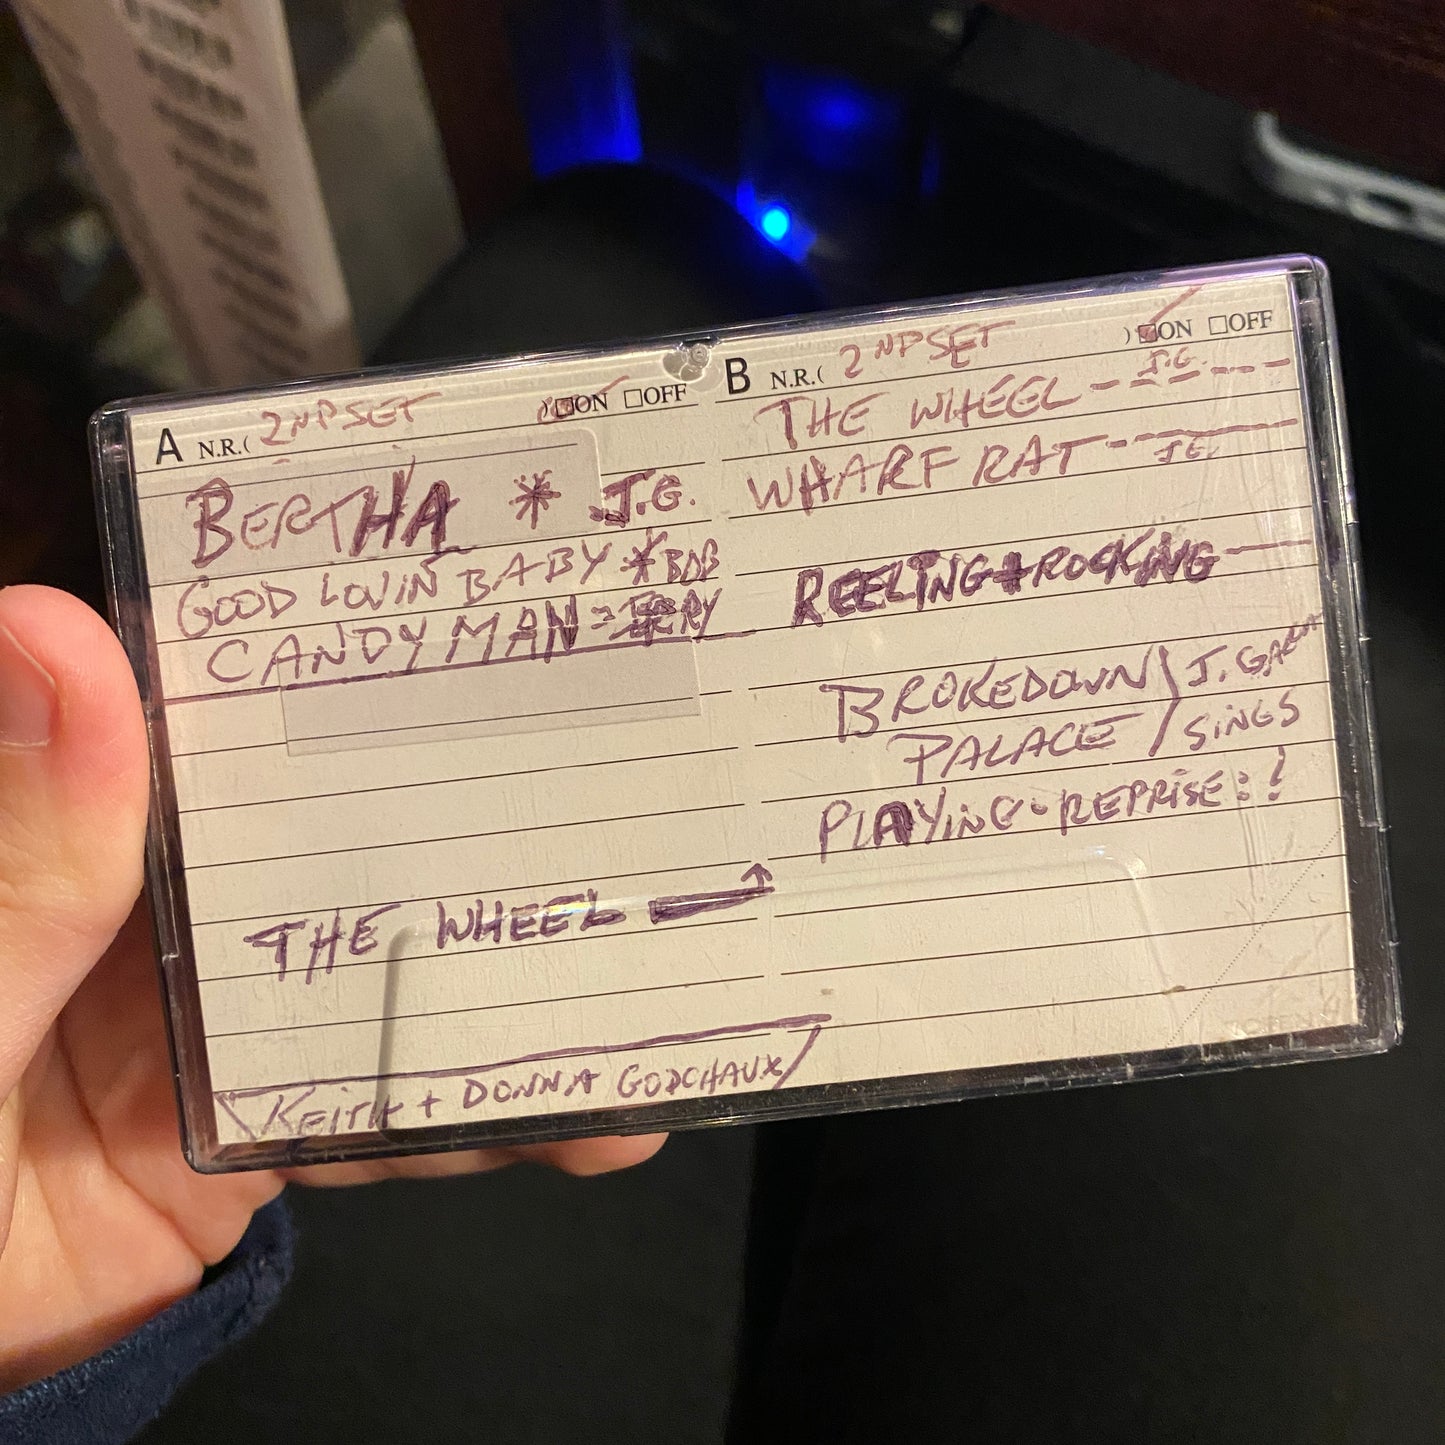 A N.R.( 2ND SET ) ☑ON ☐OFF
BERTHA * J.G.
GOOD LOVIN BABY * BOB
CANDYMAN = JERRY
THE WHEEL →
KEITH + DONNA GODCHAUX
B N.R.( 2ND SET ) ☑ON ☐OFF
THE WHEEL - - - J.G. - - -
WHARF RAT - - - J.G.
REELING + ROCKING —
BROKEDOWN J. GARCIA
PALACE SINGS
PLAYING - REPRISE : !